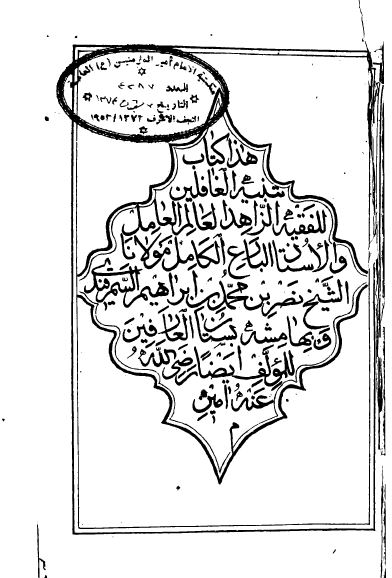 مكتبة الامام أمير المؤمنين (ع) العامة
العدد ٤٣٨٧
التاريخ
النجف الاشرف ١٣٧٢/١٩٥٣
هذا كتاب
تنبيه الغافلين
للفقيه الزاهد العالم العامل
والأستاذ البارع الكامل مولانا
الشيخ نصر بن محمد بن ابراهيم السمرقندى
وبهامشه بستان العارفين
للمؤلف أيضا رضى الله
عنه آمين
م